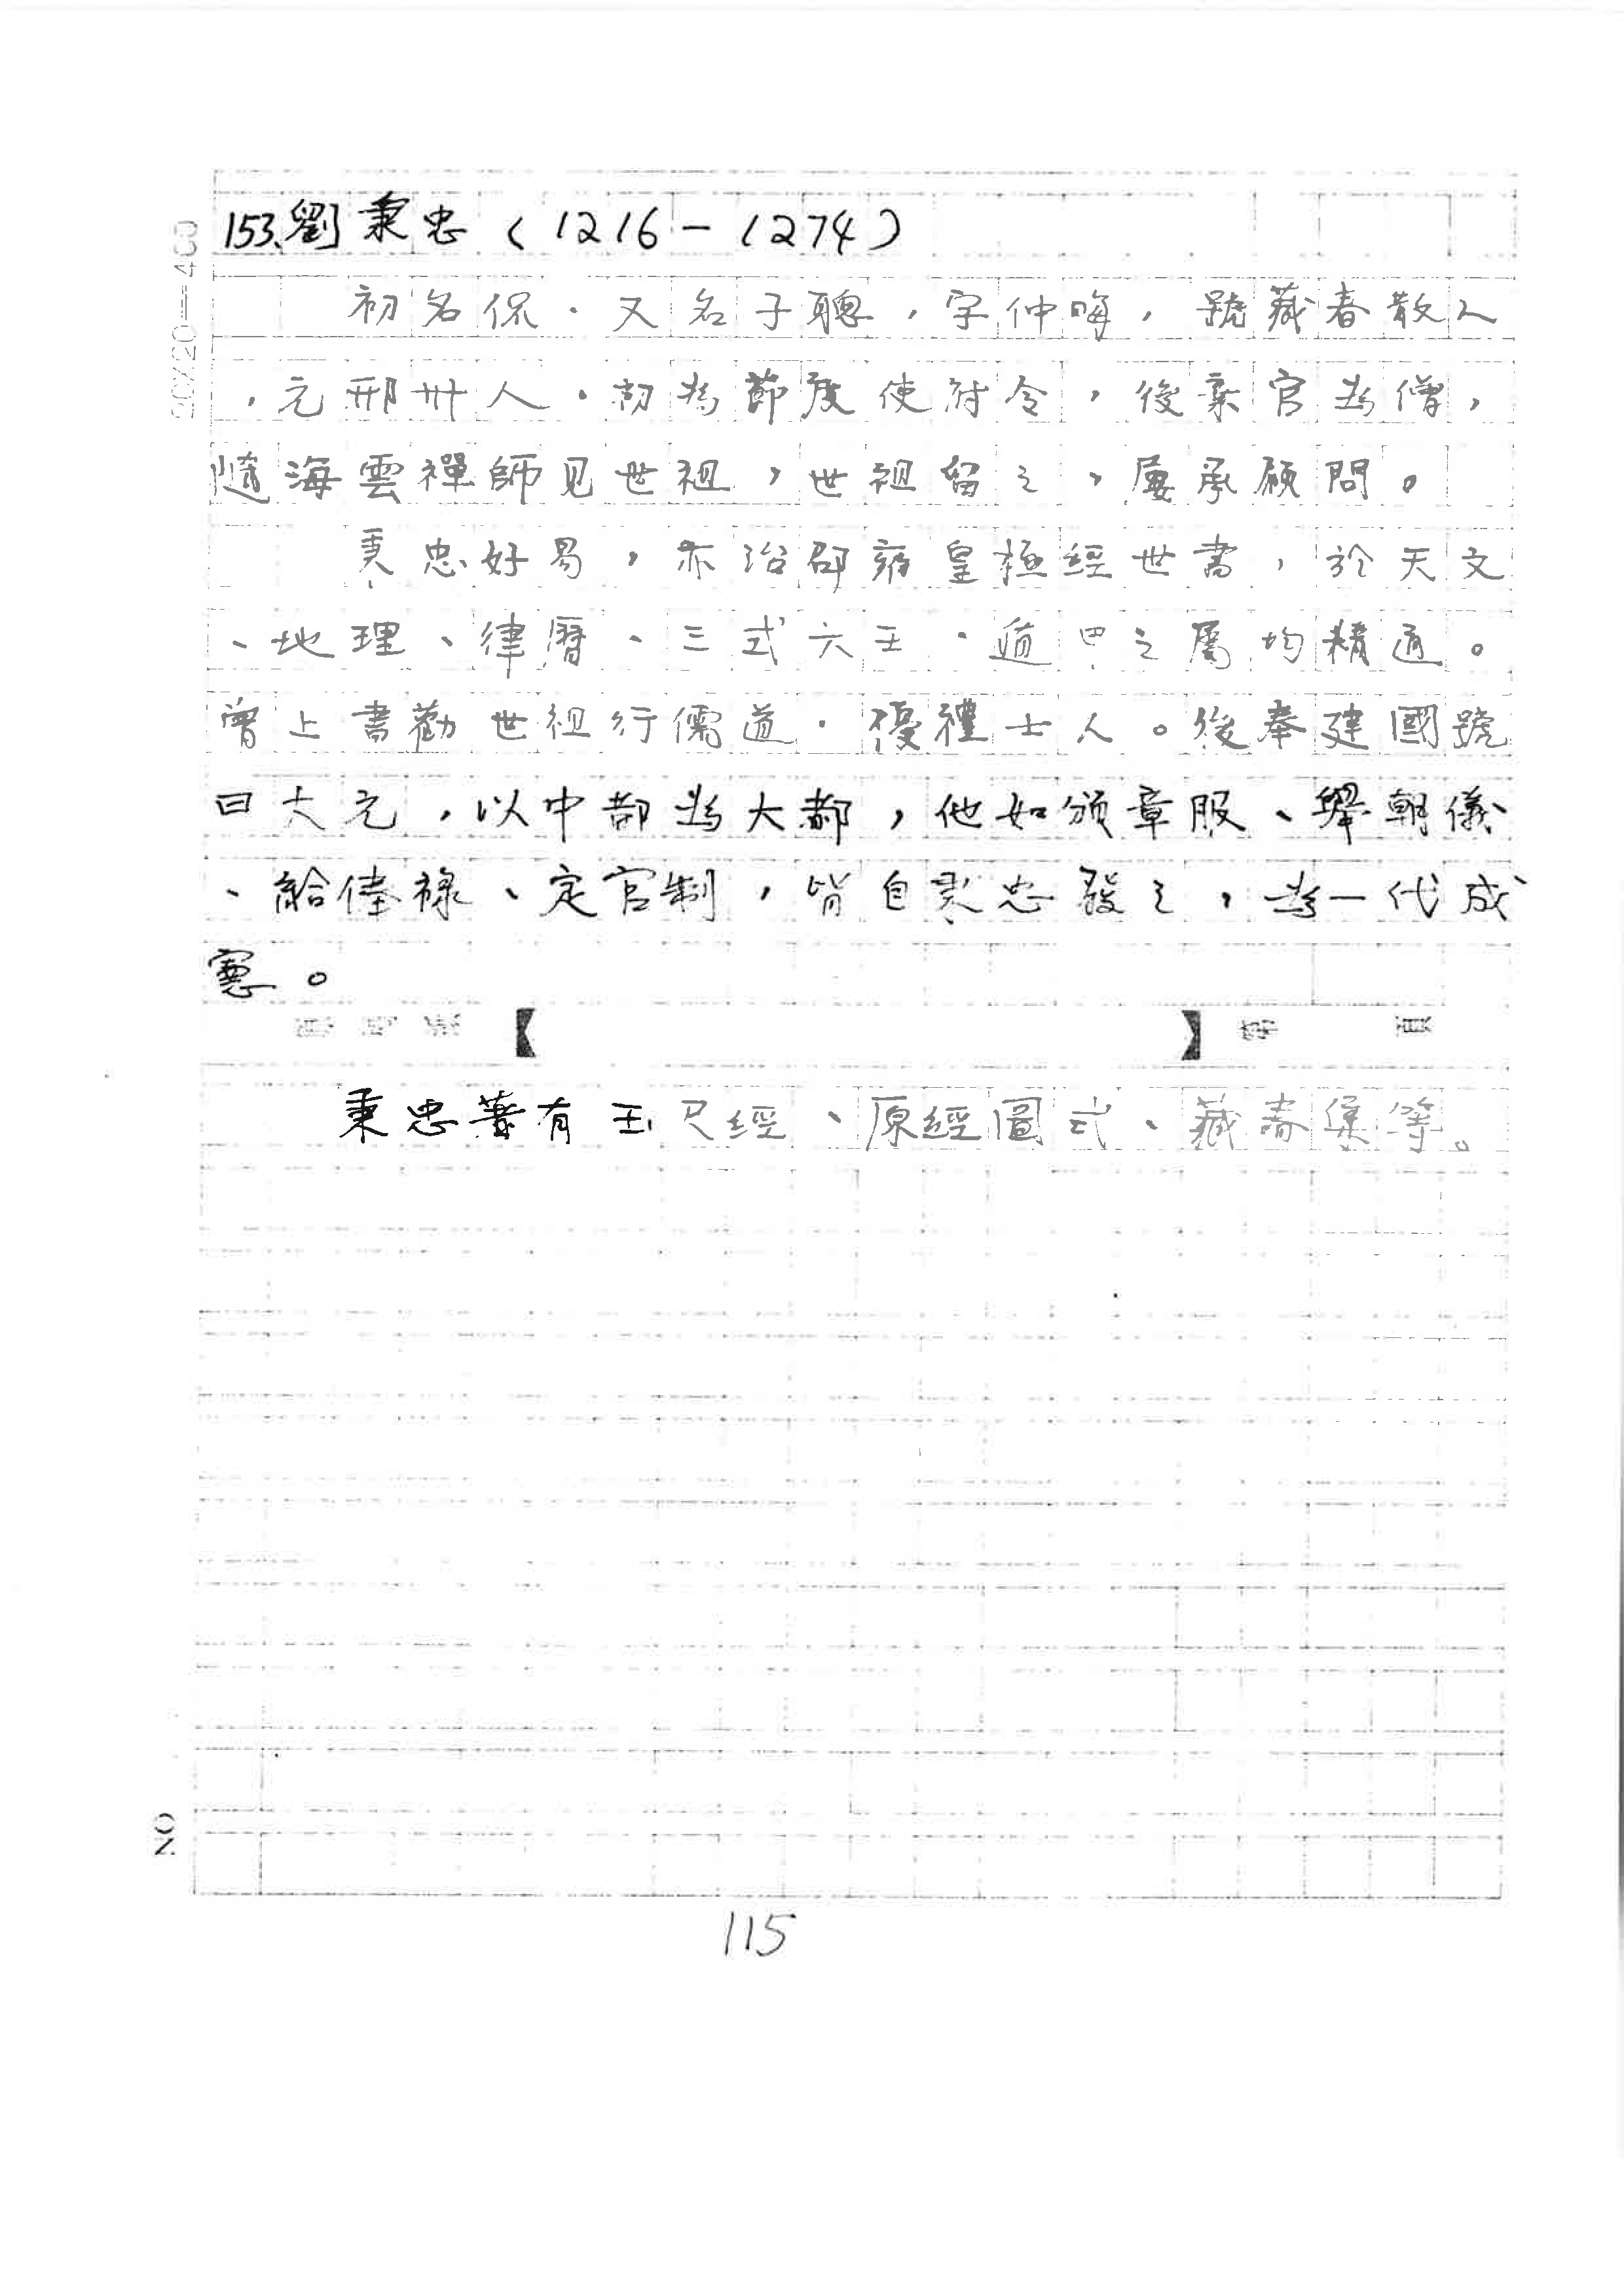 153.劉秉忠（1216－1274）
初名侃，又名子聰，字仲晦，號藏春散人
，元邢州人。初為節度使府令，後棄官為僧，
隨海雲禪師見世祖，世祖留之，屢承顧問。
秉忠好易，亦治邵雍皇極經世書，於天文
、地理、律曆、三式六壬、遁甲之屬均精通。
曾上書勸世祖行儒道，優禮士人。後奉建國號
曰大元，以中都為大都，他如頒章服、舉朝儀
、給俸祿、定官制，皆自秉忠發之，為一代成
憲。
【 】第 頁
秉忠著有玉尺經、原經圖式、藏春集等。
20×20＝400
NO
115